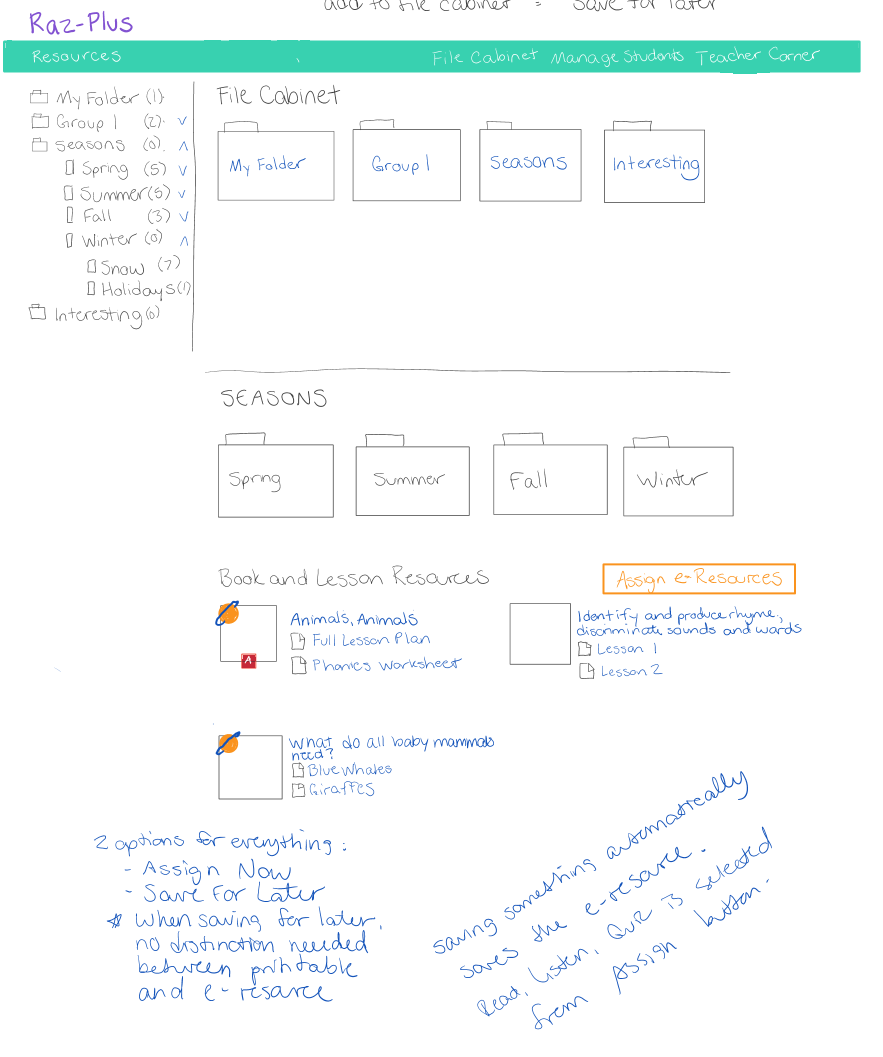 add to file cabinet = save for later
Raz-Plus
Resources File Cabinet Manage Students Teacher Corner
My Folder (1)
Group 1 (2) v
Seasons (0) ʌ
Spring (5) v
Summer (5) v
Fall (3) v
Winter (0) ʌ
Snow (7)
Holidays (1)
Interesting (6)
File Cabinet
My Folder Group 1 Seasons Interesting
SEASONS
Spring Summer Fall Winter
Book and Lesson Resources
Assign e-Resources
Animals, Animals
Full Lesson Plan
Phonics Worksheet
A
Identify and produce rhyme,
discriminate sounds and words
Lesson 1
Lesson 2
What do all baby mammals
need?
Blue Whales
Giraffes
2 options for everything:
- Assign Now
- Save For Later
* When saving for later,
no distinction needed
between printable
and e-resource
saving something automatically
saves the e-resource.
Read, Listen, Quiz is selected
from Assign button.